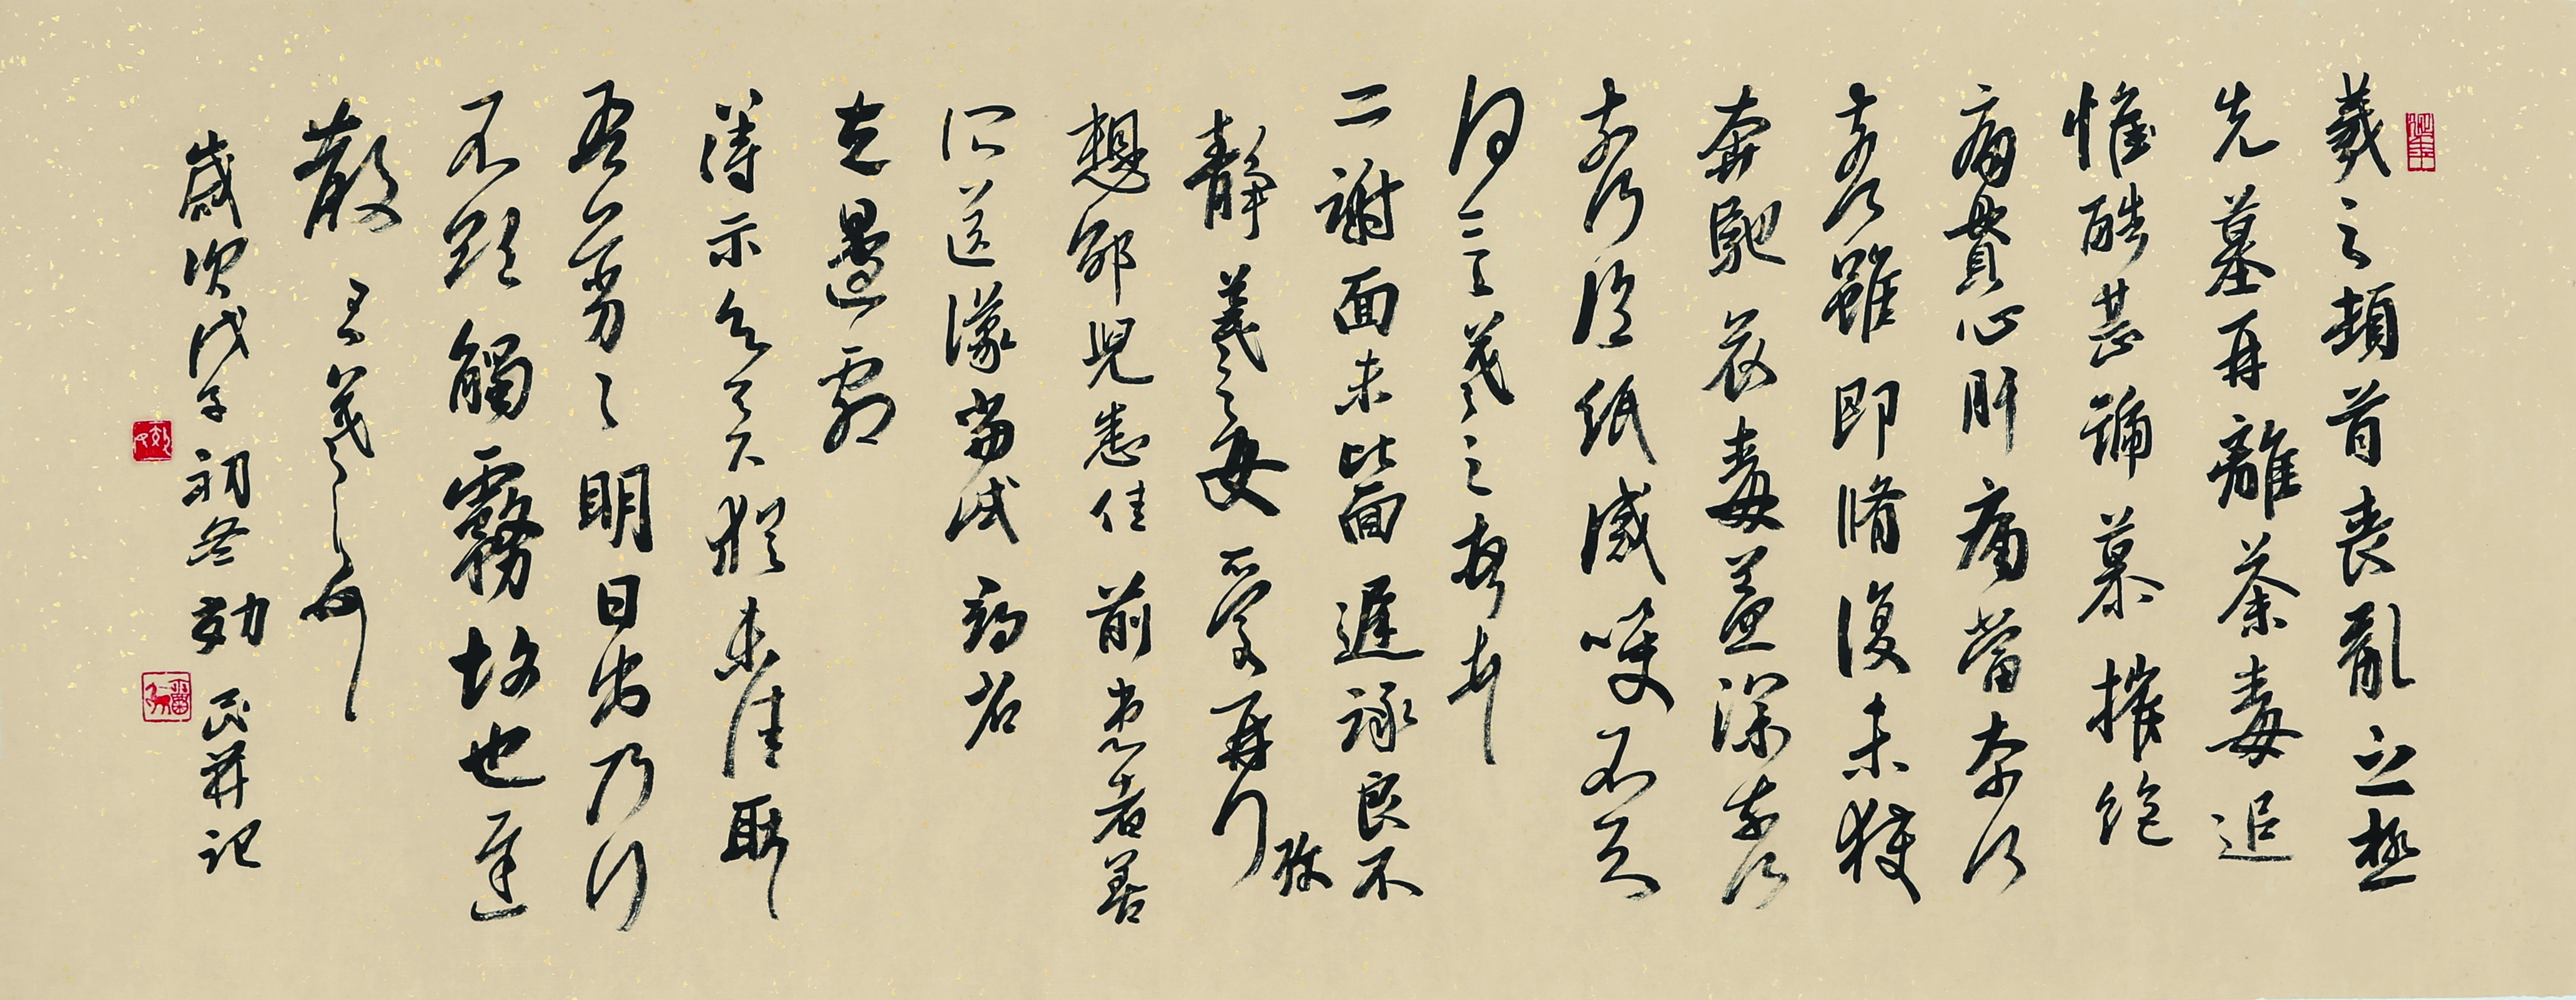 羲之頓首喪亂之極
先墓再離荼毒追
惟酷甚號慕摧絕
痛貫心肝痛當奈何
奈何雖即脩復未獲
奔馳哀毒益深奈何
奈何臨紙感哽不知
何言羲之頓首頓首
二謝面未比面遲詠良不
靜羲之女愛再拜
珍
想邵兒悉佳前患者善
所送議當試尋省
左邊劇
得示知足下猶未佳耿
吾亦劣劣明日出乃行
不欲觸霧故也遲
散王羲之頓首
歲次戊子初冬効民記